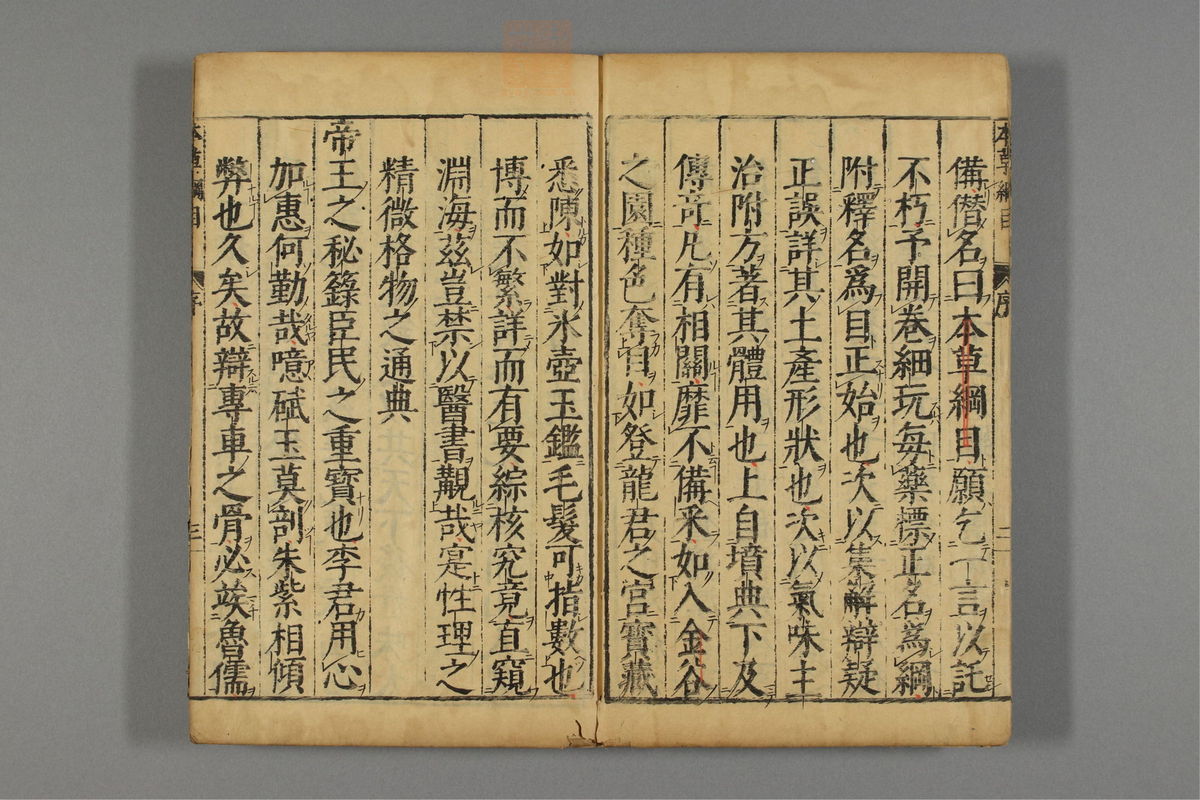 本草綱目 序 二
備僭名曰本草綱目願乞一言以託
不朽予開卷細玩每藥標正名爲綱
附釋名爲目正始也次以集解辯疑
正誤詳其土産形狀也次以氣味主
治附方著其體用也上自墳典下及
傳竒凡有相關靡不備采如入金谷
之園種色奪目如登龍君之宫寳藏
悉陳如對氷壺玉鑑毛髮可指數也
博而不繁詳而有要綜核究竟直窺
淵海茲豈禁以醫書覯哉寔性理之
精微格物之通典
帝王之秘籙臣民之重寶也李君用心
加惠何勤哉噫碔玉莫剖朱紫相傾
弊也久矣故辯專車之骨必竢魯儒
本草綱目 序 三